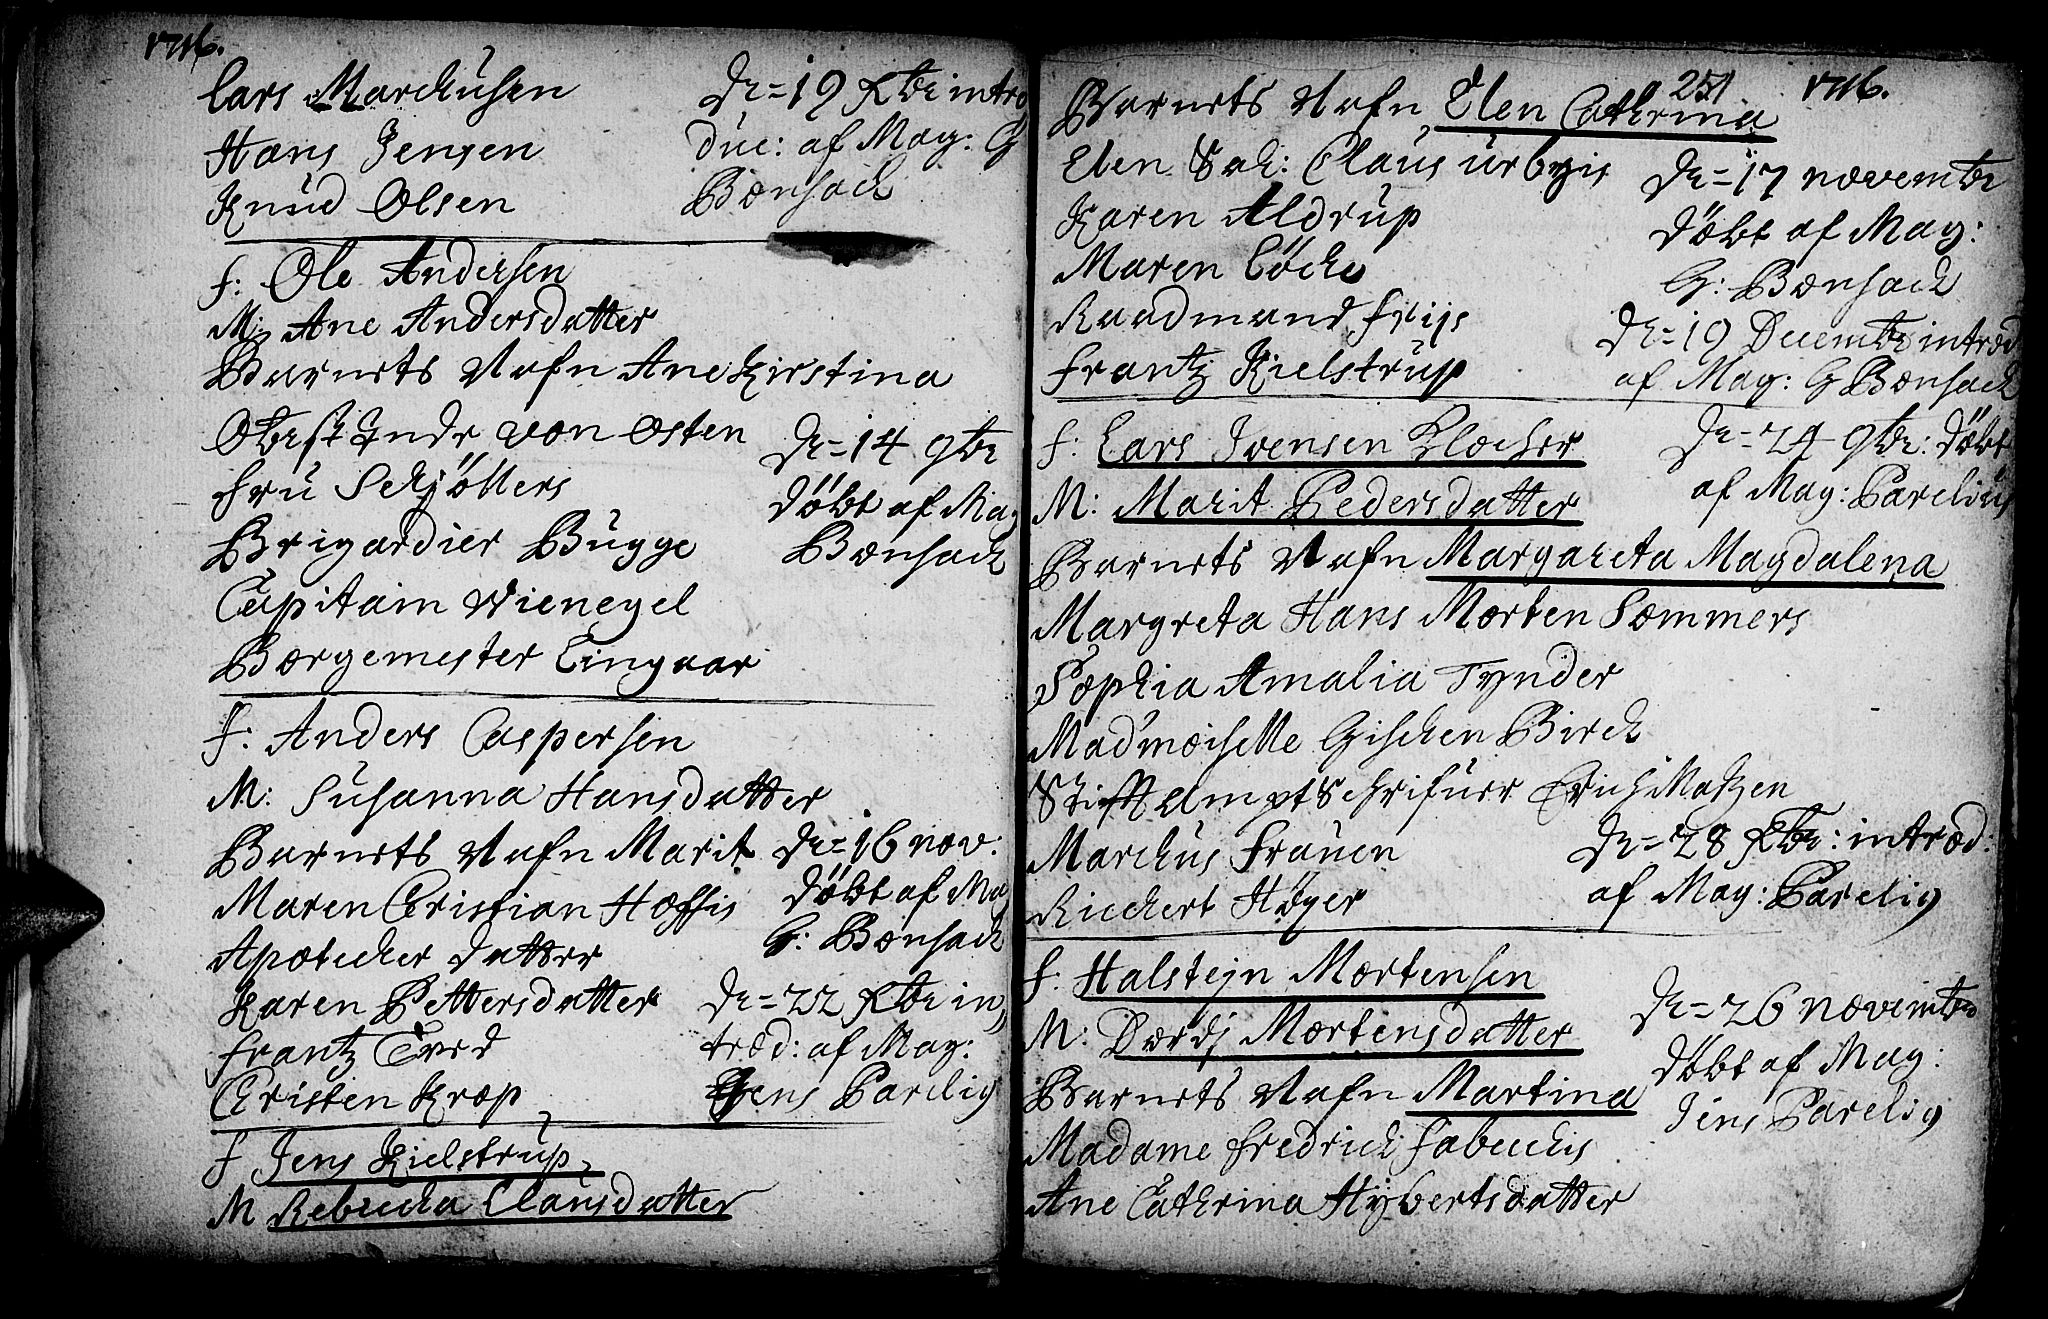 1716.
Lars Marchusen
Hans Jensen
Knud Olsen
De=19 Xbr intro
duc: af Mag: G
Bonsach
f: Ole Andersen
M: Ane Andersdatter
Barnets Nafn Ane Kirstina
Oberst Indr von Osten
fru Schjöllers
Brigardier Bugge
Capitain Wienegel
Borgemester Lingaar
De=14 9br
döbt af Mag
Bonsach
f: Anders Caspersen
M: Susanna Hansdatter
Barnets Nafn Marit
Maren Christian Hoffis
Apotecher datter
Karen Pettersdatter
frantz Tved
Christen Krop
De=16 nov:
döbt af Ma
G: Bonsach
De=22 Xbr in,
trod: af Mag:
Jens Parelig
f Jens Kielstrup
M Rebecka Clausdatter
251 1716.
Barnets Nafn Elen Cathrina
Elen Sal: Claus urbyis
Karen Aldrup
Maren Löche
Raadmand friis
frantz Kielstrup
De=17 novembr
döbt af Mag:
G: Bonsach
De=19 Decembr introd
af Mag: G Bonsach
f: Lars Ivensen Klocher
M: Marit Pedersdatter
Barnets Nafn Margareta Magdalena
Margreta Hans Morten Sommers
Sophia Amalia Tynder
Madmoiselle Gischen Birch
Stifft Ampt Schrifuer Erich Matzen
Marchus frauen
Riechert Höyer
De=24 9br: döbt
af Mag: Parelius
De=28 Xbr: introd:
af Mag: Parelig
f: Halstejn Mortensen
M: Dordj Mortensdatter
Barnets Nafn Martina
Madame fredrich fabechis
Ane Cathrina Hybertsdatter
De=26 novembr
döbt af Mag:
Jens Parelig